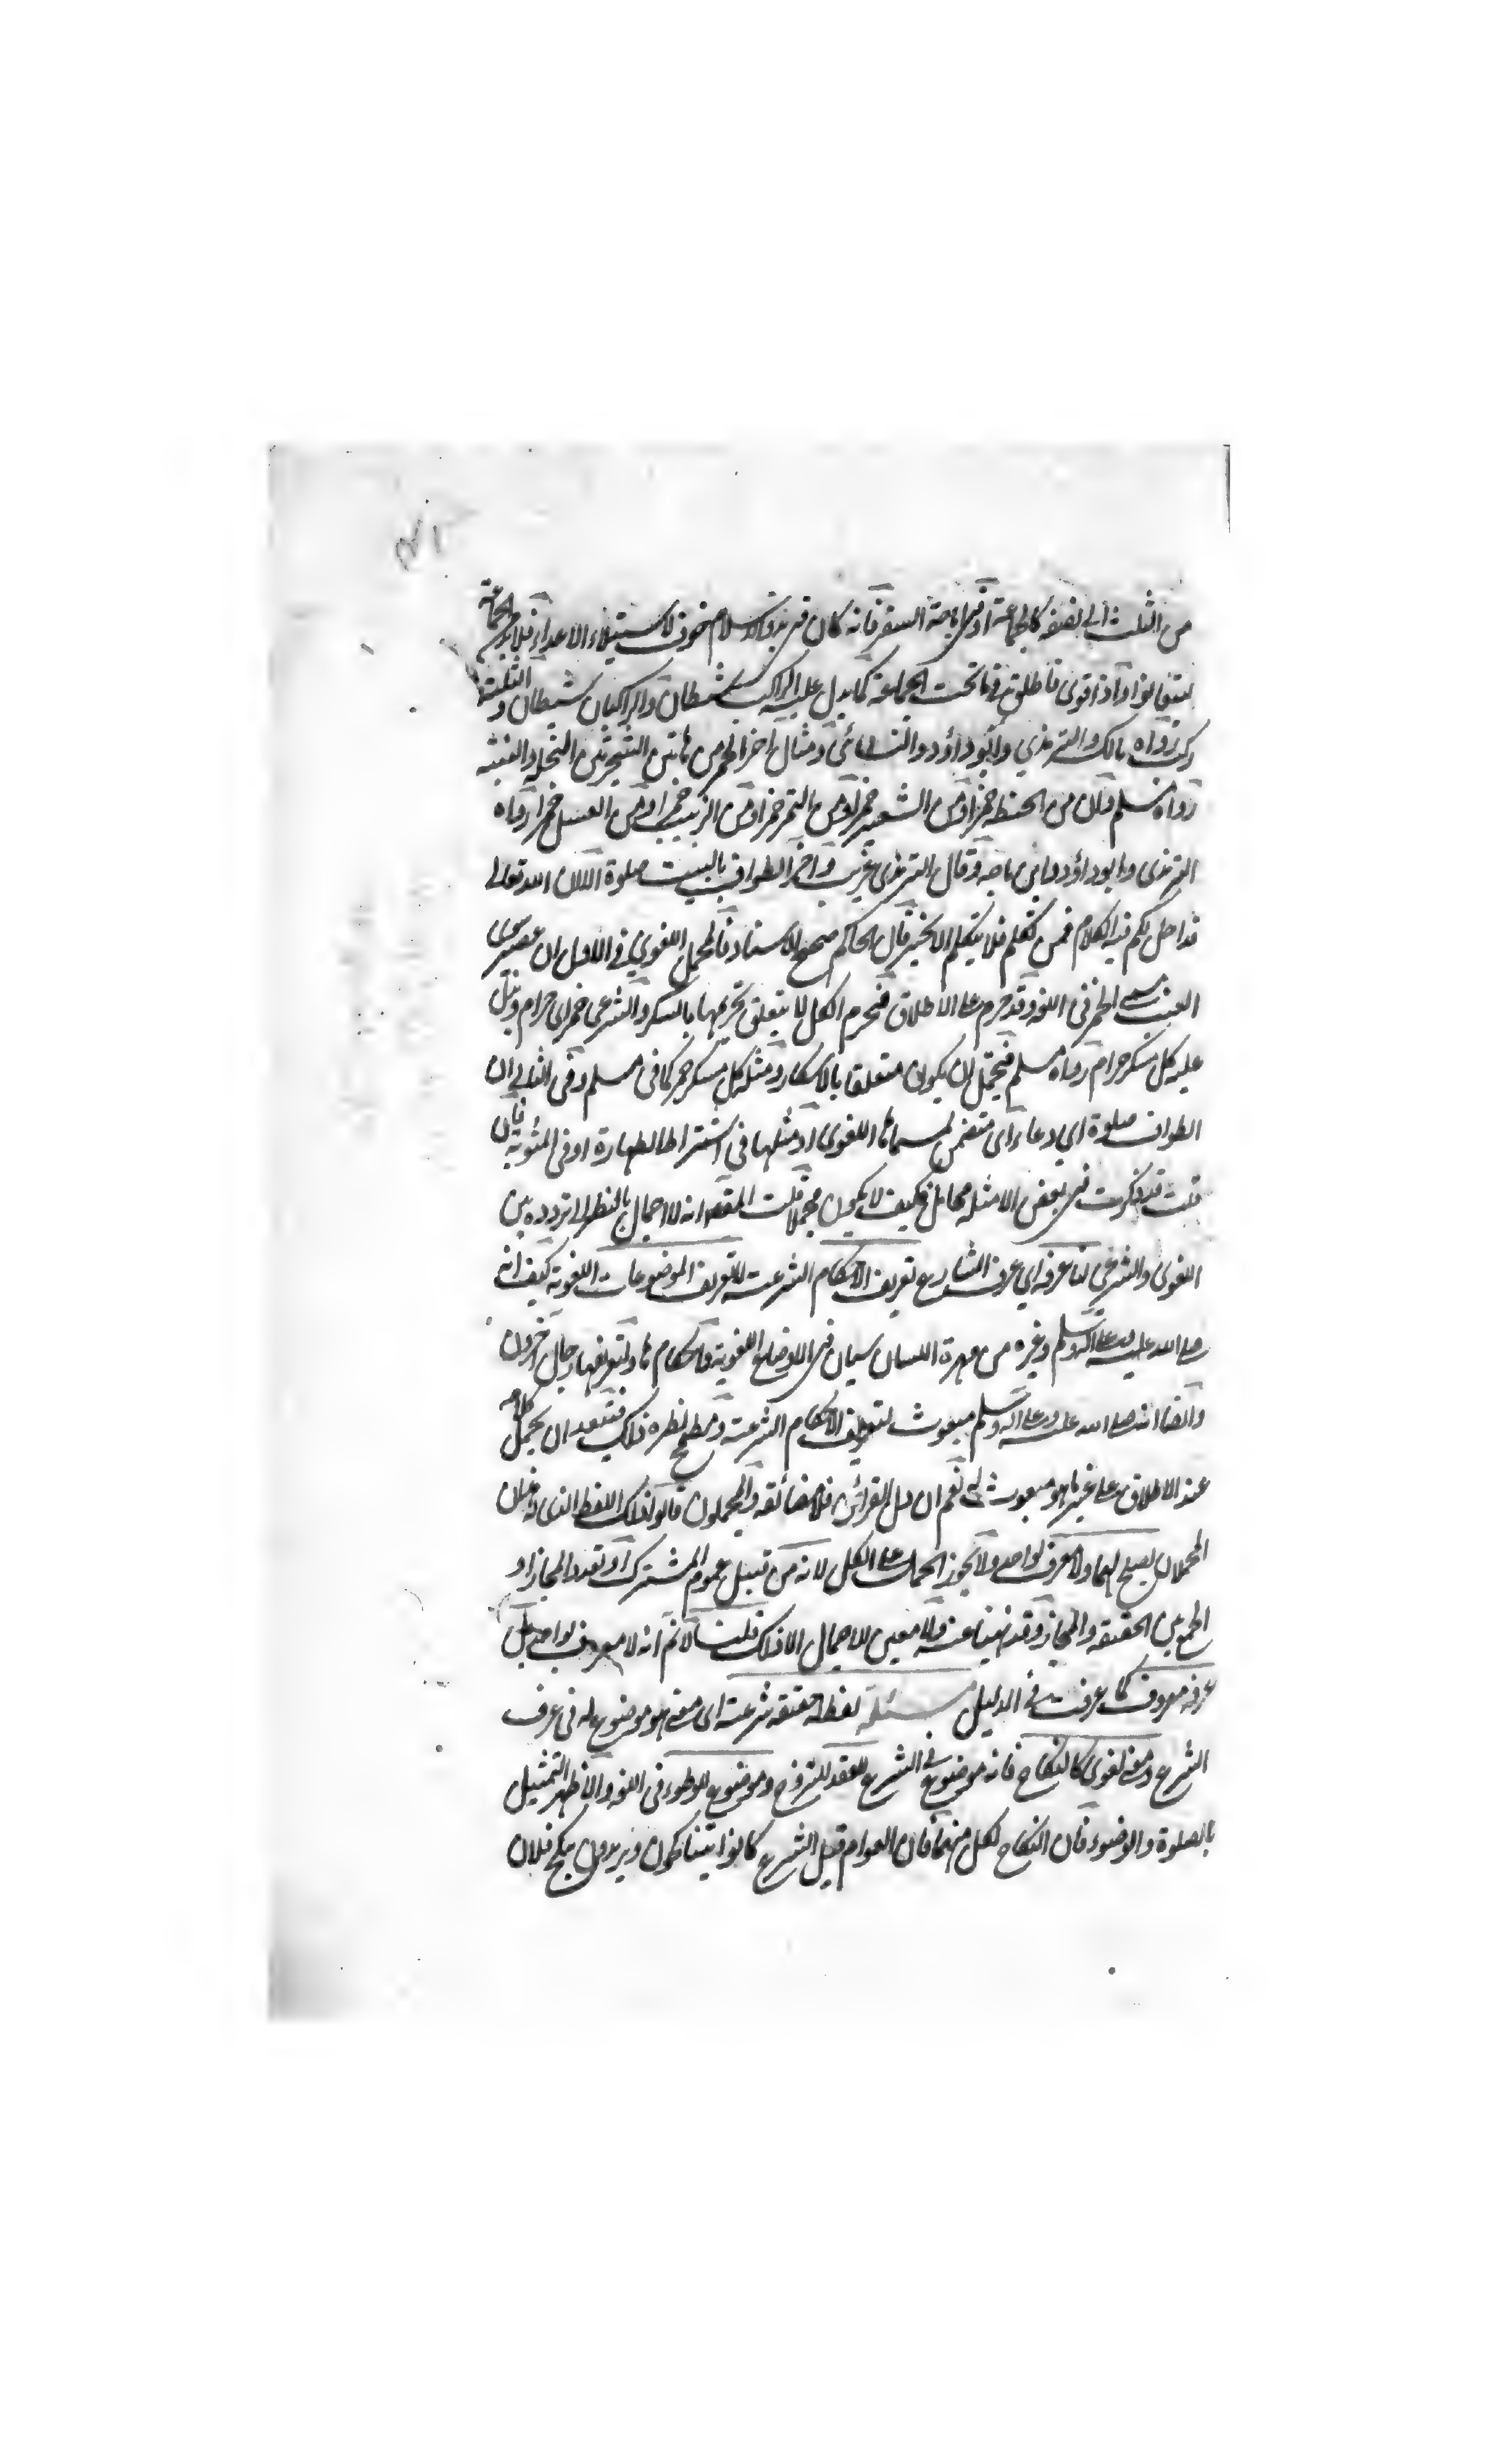 من الثلث الى نصفه كالجماعة او في اباحة السفر فانه كان في بدو الاسلام خوف لاستيلاء الاعداء فلا بد من الجماعة
ليتقابلوا واذا قوى فاطلق فيما تحت الجماعة كما يدل عليه الراكب شيطان والراكبان شيطان والثلثة
ركب رواه مالك والترمذي وابو داؤد والنسائي ومثال اخر الخمر من هاتين الشجرتين النخلة والعنبة
رواه مسلم فان من الحنطة خمرا ومن الشعير خمرا ومن التمر خمرا ومن الزبيب خمرا ومن العسل خمرا رواه
الترمذى وابو داؤد وابن ماجه وقال الترمذى غريب واخر الطواف بالبيت صلوة الا ان الله تعالى
قد احل لكم فيه الكلام فمن تكلم فلا يتكلم الا بخير قال الحاكم صحيح الاسناد فالمحمل اللغوي في الاول ان عصير سوى
العنب يسمى الخمر في اللغة وقد حرم على الاطلاق فيحرم الكل لا يتعلق تحريمها بالسكر والشرعى خمر اى حرام ويدل
عليه كل مسكر حرام رواه مسلم فيحتمل ان يكون متعلقا بالاسكار ومثله كل مسكر خمر كما في مسلم وفي الثاني ان
الطواف صلوة اى دعاء اى متضمن لمسماها اللغوى او مثلها في اشتراط الطهارة او في المثوبة فان
قلت قد ذكرت في بعض الامثلة محامل فكيف لا يكون مجملا قلت المقصد انه لا اجمال بالنظر الى تردده بين
اللغوى والشرعي لنا عرفه اي عرف الشارع تعريف الاحكام الشرعية لا تعريف الموضوعات اللغوية كيف انه
صلى الله عليه وعلى اله وسلم وغيره من مهرة اللسان سيان في الاوضاع اللغوية والاحكام لها ولتعريفها رجال اخرون
وايضا انه صلى الله عليه وعلى اله وسلم مبعوث لتعريف الاحكام الشرعية ومطمح نظره ذلك فيبعد ان يحمل كلامه
عند الاطلاق على غير ما هو مبعوث له نعم ان دل القرائن فلا مضائقة والمجملون قالوا ذلك اللفظ الذى له
المحملان يصلح لهما ولا معرف لواحد ولا يجوز الحمل على الكل لانه من قبيل عموم المشترك او تعدد المجاز او
الجمع بين الحقيقة والمجاز وقد نهينا عنه ولا معين للاجمال الا ذلك قلنا لا نم انه لا معرف لواحد بل
عرفه معروف كما عرفت في الدليل مسئلة لفظ له حقيقة شرعية اى معنى هو موضوع له في عرف
الشرع ومعنى لغوى كالنكاح فانه موضوع في الشرع للعقد للتزوج وموضوع للوطوء في اللغة والاظهر التمثيل
بالصلوة والوضوء فان النكاح لكل منهما فان العوام قبل الشرع كانوا يتناكحون ويريدون نكح فلان